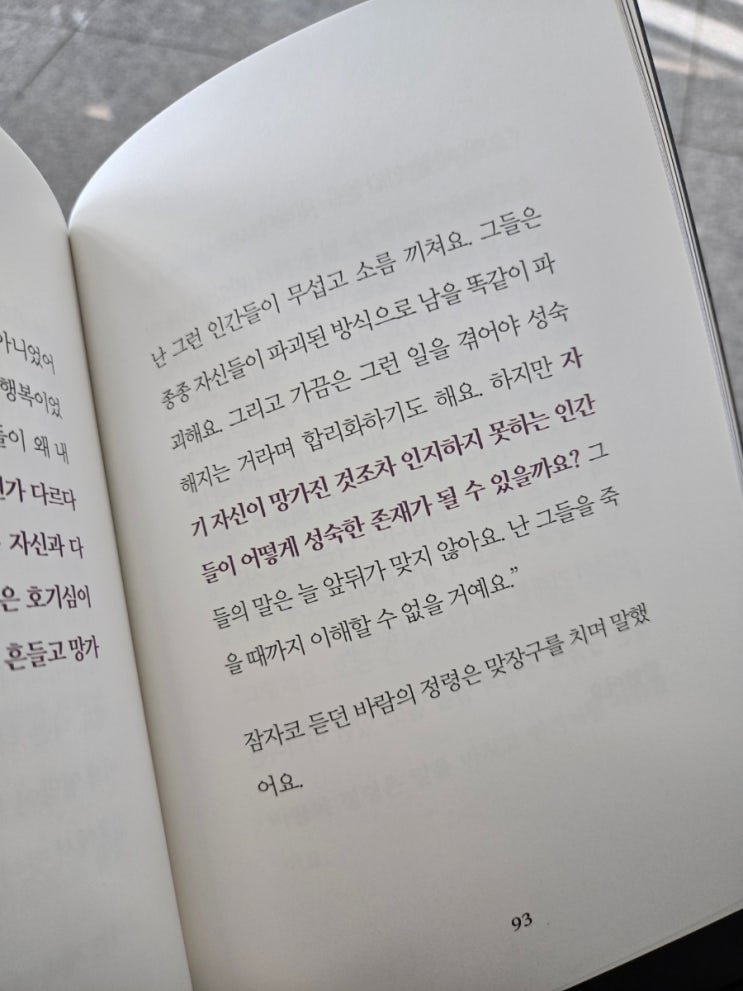 아니었어
행복이었
들이 왜 내
가 다르다
자신과 다
은 호기심이
흔들고 망가
난 그런 인간들이 무섭고 소름 끼쳐요. 그들은
종종 자신들이 파괴된 방식으로 남을 똑같이 파
괴해요. 그리고 가끔은 그런 일을 겪어야 성숙
해지는 거라며 합리화하기도 해요. 하지만 자
기 자신이 망가진 것조차 인지하지 못하는 인간
들이 어떻게 성숙한 존재가 될 수 있을까요? 그
들의 말은 늘 앞뒤가 맞지 않아요. 난 그들을 죽
을 때까지 이해할 수 없을 거예요.”
잠자코 듣던 바람의 정령은 맞장구를 치며 말했
어요.
93